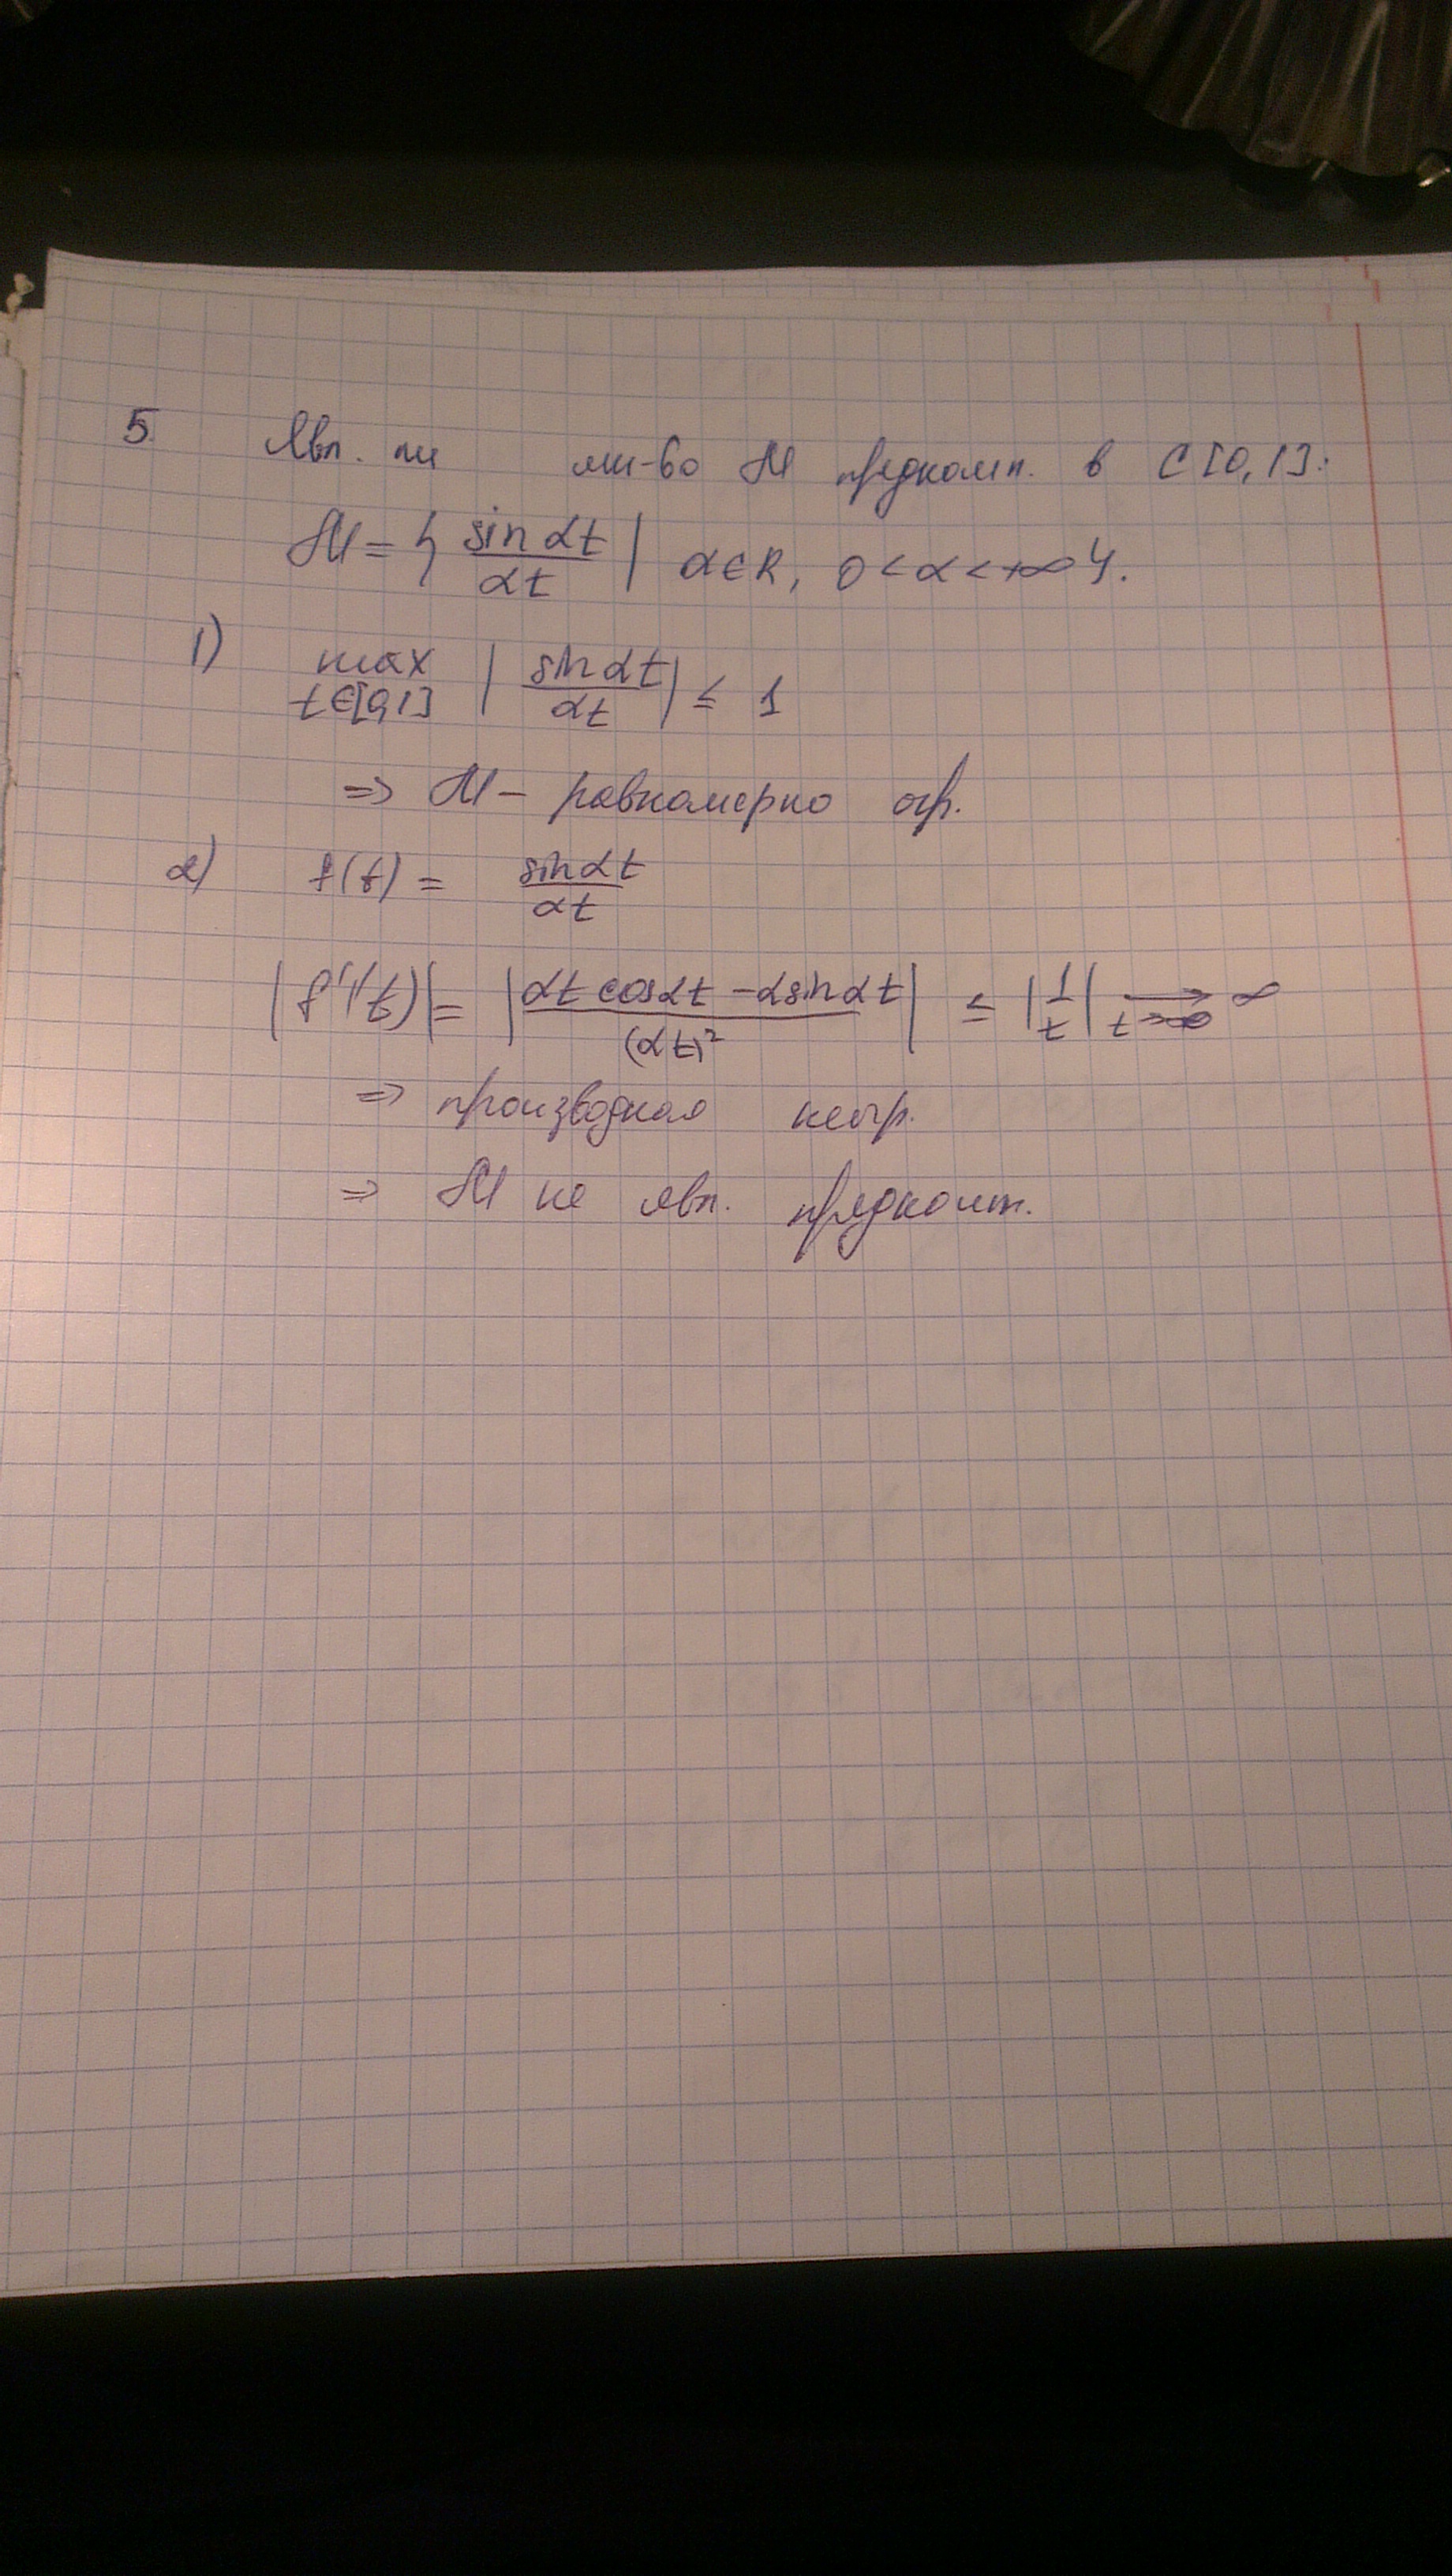 5. Явл. ли мн-во M предкомп. в C[0,1]:
M = { sin αt / αt | α∈R, 0<α<+∞ }.
1) max t∈[0,1] | sin αt / αt | ≤ 1
⇒ M – равномерно огр.
2) f(t) = sin αt / αt
|f'(t)| = | αt cos αt – α sin αt / (αt)² | ≤ | 1 / t | → t→0 ∞
⇒ производная неогр.
⇒ M не явл. предкомп.